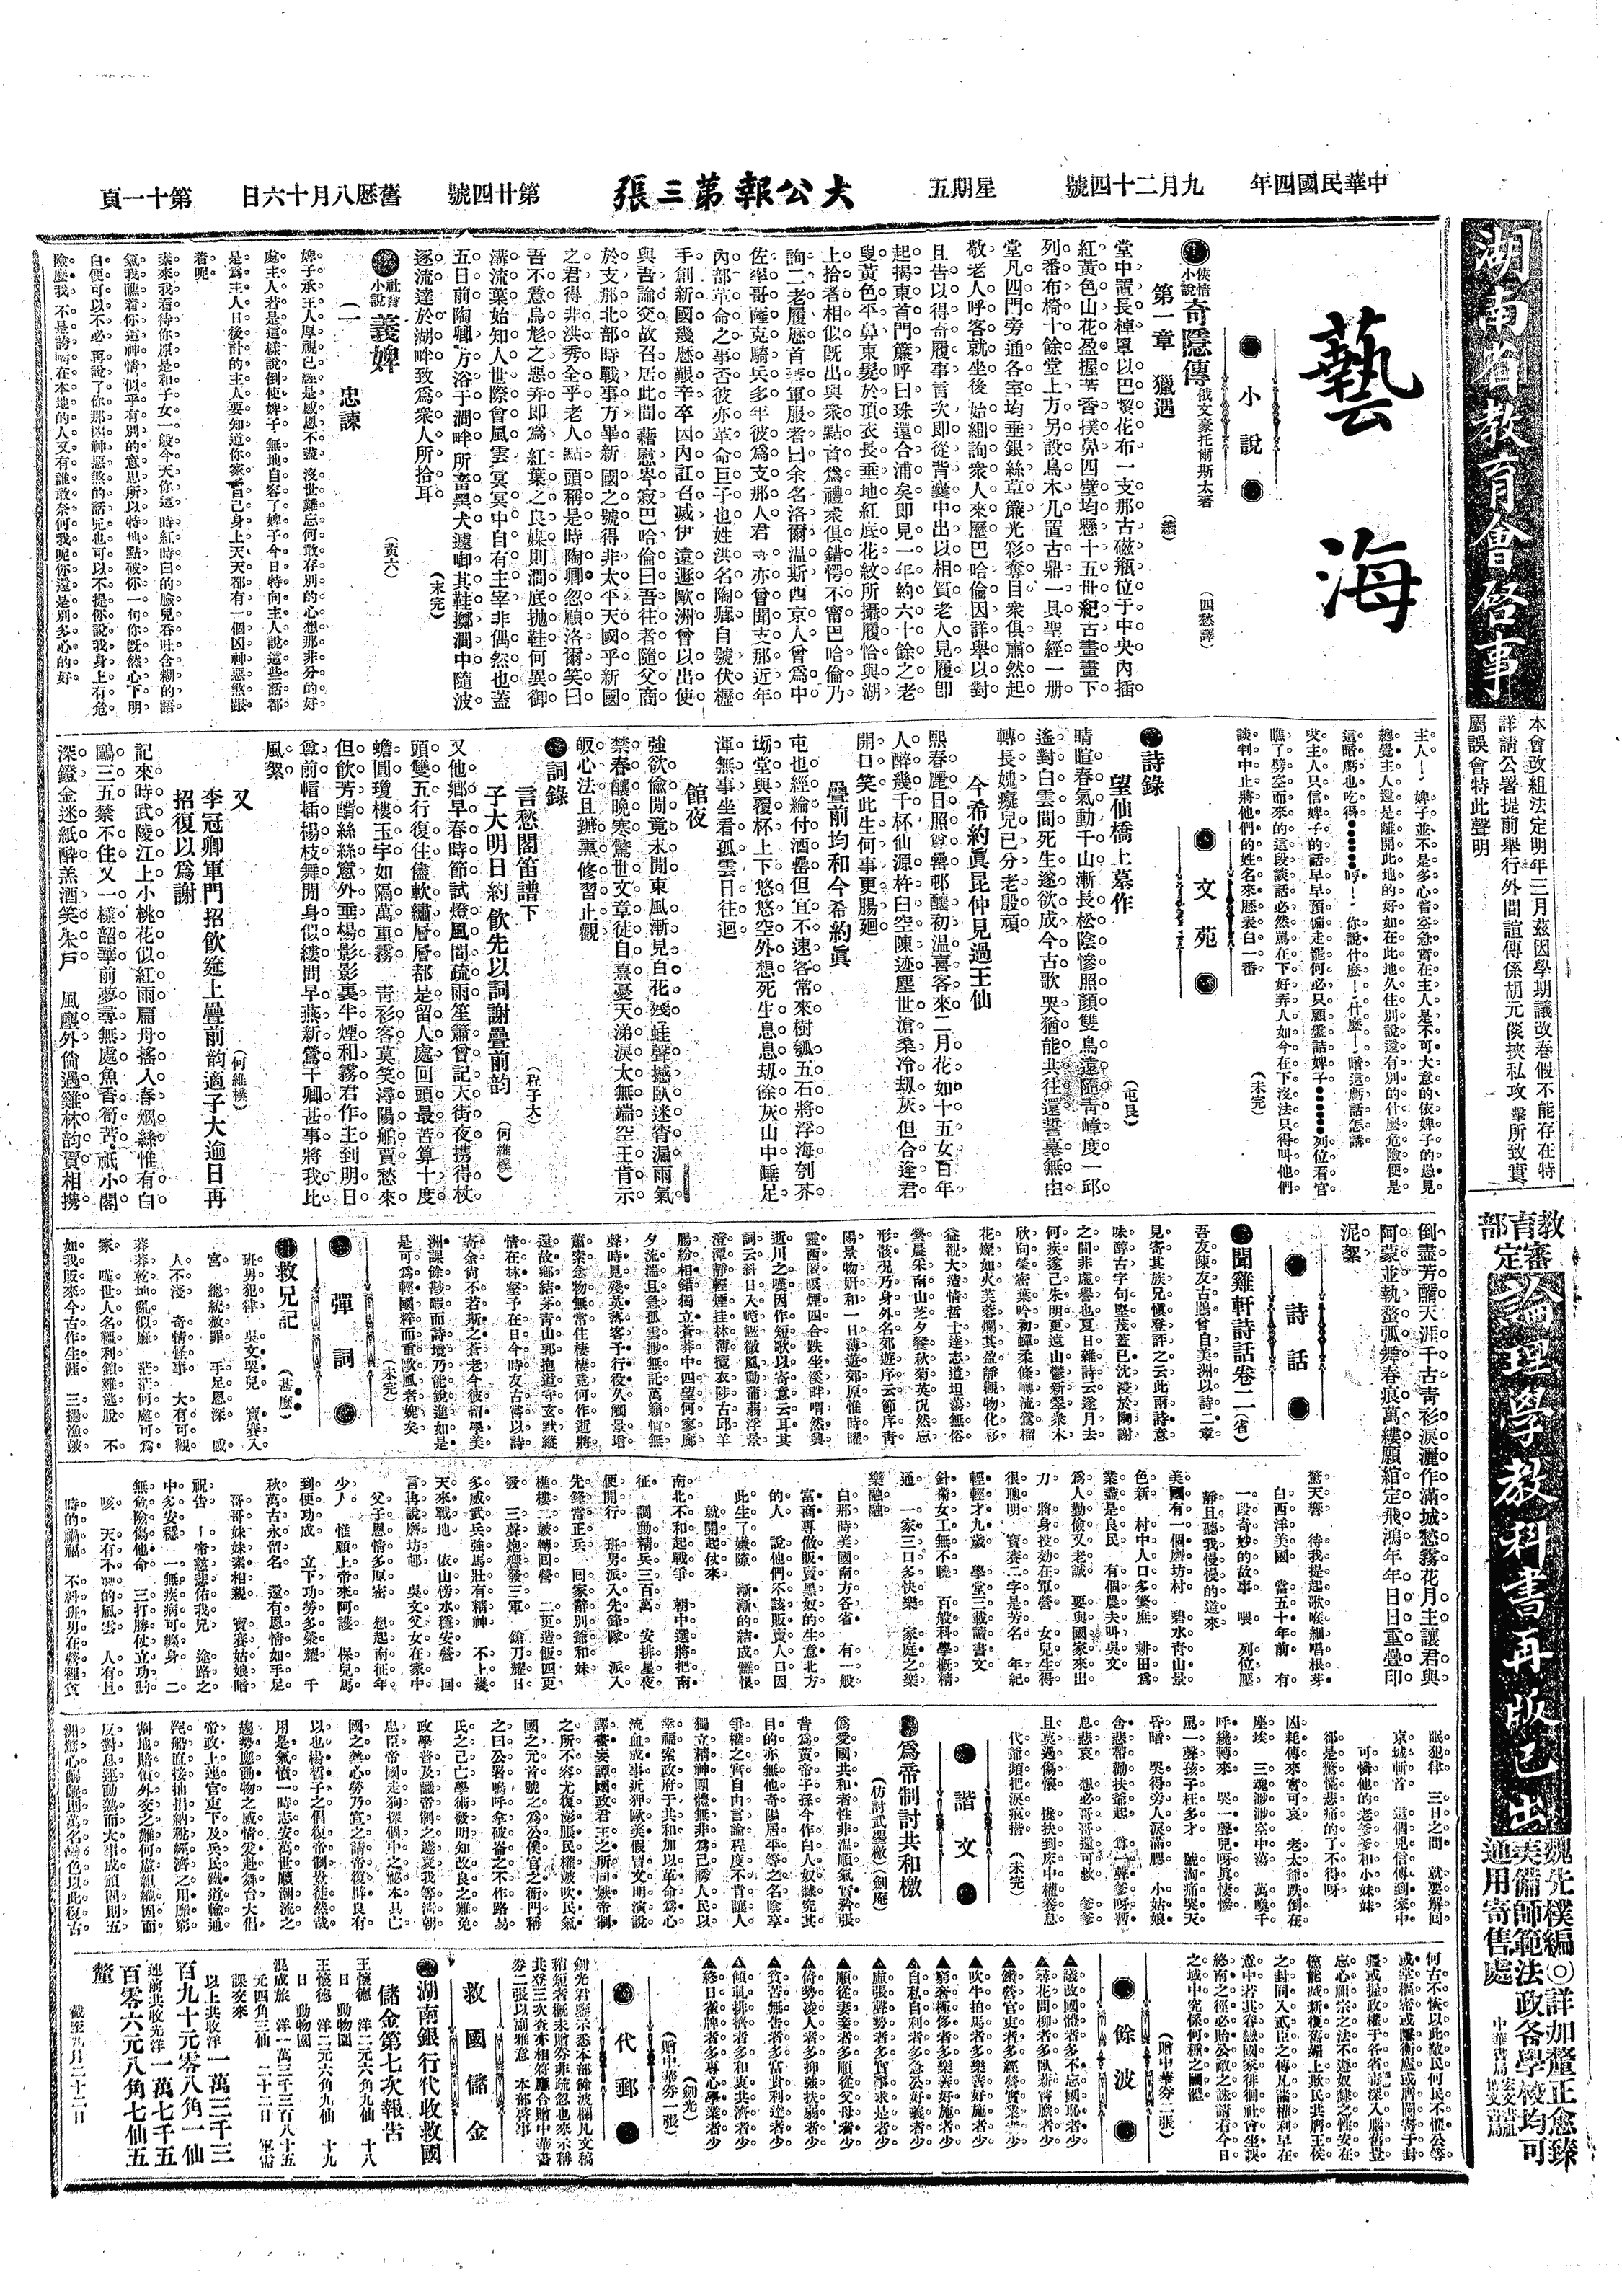 中華民國四年
九月二十四號
星期五
大公報第三張
第廿四號
舊歷八月十六日
第十一頁
湖南省教育會啓事
本會改組法定明年三月茲因學期議改春假不能存在特
詳請公署提前舉行外間諠傳係胡元倓挾私攻擊所致實
屬誤會特此聲明
教育部審定
倫理學教科書再版已出
魏先樸編◎詳加釐正愈臻
美備師範法政各學校均可
通用寄售處
中華書局
藝海
小說
俠情小說
奇隱傳
俄文豪托爾斯太著
(四愁譯)
第一章 獵遇
(續)
堂中置長棹罩以巴黎花布一支那古磁瓶位于中央內插
紅黃色山花盈握苦香撲鼻四壁均懸十五世紀古畫畫下
列番布椅十餘堂上方另設烏木几置古鼎一具聖經一册
堂凡四門旁通各室均垂銀絲草簾光彩奪目衆俱肅然起
敬老人呼客就坐後始細詢衆人來歷巴哈倫因詳舉以對
且告以得奇履事言次即從背囊中出以相質老人見履卽
起揭東首門簾呼曰珠還合浦矣即見一年約六十餘之老
叟黃色平鼻束髮於頂衣長垂地紅底花紋所攝履恰與湖
上拾者相似既出與衆點首爲禮衆俱錯愕不甯巴哈倫乃
詢二老履歷首著軍服者曰余名洛爾温斯西京人曾爲中
佐率哥薩克騎兵多年彼爲支那人君等亦曾聞支那近年
內部革命之事否彼亦革命巨子也姓洪名陶驛自號伏櫪
手創新國幾歷艱辛卒因內訌召滅伊遠遯歐洲曾以出使
與吾論交故召居此間藉慰岑寂巴哈倫曰吾往者隨父商
於支那北部時戰事方畢新國之號得非太平天國乎新國
之君得非洪秀全乎老人點頭稱是時陶卿忽顧洛爾笑曰
吾不意烏尨之惡弄即爲紅葉之良媒則澗底拋鞋何異御
溝流葉始知人世際會風雲冥冥中自有主宰非偶然也蓋
五日前陶卿方浴于澗畔所畜黑犬遽啣其鞋擲澗中隨波
逐流達於湖畔致爲衆人所拾耳
(未完)
社會小說
義婢
(黃六)
(二) 忠諫
婢子承主人厚視已經是感恩不盡沒世難忘何敢存別的心想那非分的好
處主人若是這樣說倒使婢子無地自容了婢子今日特向主人說這些話都
是爲主人日後計的主人要知道你家自己身上天天都有一個凶神惡煞跟
着呢
秦來我看待你原是和子女一般今天你這時紅時白的臉兒吞吐含糊的語
氣我瞧着你這神情似乎有別的意思所以特地點破你一句你既然心下明
白便可以不必再說了你那凶神惡煞的話兒也可以不提你說我身上有危
險麼我不是誇嘴在本地的人又有誰敢奈何我呢你還是別多心的好
主人!婢子並不是多心着空恐嚇在主人是不可大意的依婢子的愚見
總覺主人還是離開此地的好如在此地久住別說還有別的什麼危險便是
這暗虧也吃得●●●●●哼!你說什麼!什麼!暗這虧話怎講
哎主人只信婢子的話早早預備走罷何必只顧盤詰婢子●●●●●列位看官
瞧了劈空而來的這段談話必然罵在下好弄人如今在下沒法只得叫他們
談判中止將他們的姓名來歷表白一番
(未完)
文苑
詩錄
望仙橋上墓作
(屯艮)
晴暄春氣動千山漸長松陰慘照顏雙鳥遠隨青嶂度一邱
遙對白雲間死生遂欲成今古歌哭猶能共往還誓墓無由
轉長嬝癡兒已分老殷頑
今希約眞昆仲見過王仙
熙春麗日照尊罍邨釀初温喜客來二月花如十五女百年
人醉幾千杯仙源杵臼空陳迹塵世滄桑冷刼灰但合逢君
開口笑此生何事更腸廻
疊前均和今希約眞
屯也經綸付酒罍但宜不速客常來樹瓠五石將浮海刳芥
坳堂與覆杯上下悠悠空外想死生息息刼餘灰山中睡足
渾無事坐看孤雲日往迴
館夜
強欲偸閒竟未閒東風漸見白花殘蛙聲撼臥迷宵漏雨氣
禁春釀晚寒驚世文章徒自熹憂天涕淚太無端空王肯示
皈心法且辦熏修習止觀
詞錄
言愁閣笛譜下
(程子大)
子大明日約飲先以詞謝疊前韵
(何維樸)
又他鄉早春時節試燈風間疏雨笙簫曾記天街夜携得杖
頭雙五行復住儘軟繡層層都是留人處回頭最苦算十度
蟾圓瓊樓玉宇如隔萬重霧 靑衫客莫笑潯陽船賈愁來
但飲芳醑絲絲意外垂楊影影裏半煙和霧君作主到明日
尊前帽插楊枝舞閒身似縷問早燕新鶯干卿甚事將我比
風絮
又
(何維樸)
李冠卿軍門招飲筵上疊前韵適子大逾日再
招復以爲謝
記來時武陵江上小桃花似紅雨扁舟搖入春烟絲惟有白
鷗三五禁不住又一樣韶華前夢尋無處魚香筍苦祇小閣
深鐙金迷紙醉羔酒笑朱戶 風塵外倘遇雞林韵賈相携
倒盡芳醑天涯千古靑衫淚灑作滿城愁霧花月主讓君與
阿蒙並執蝥弧舞春痕萬縷願綰定飛鴻年年日日重疊印
泥絮
詩話
聞雞軒詩話卷二
(省)
吾友陳友古鵾曾自美洲以詩二章
見寄其族兄愼登評之云此兩詩意
味醇古字句堅茂蓋已沈浸於陶謝
之間非虛譽也夏日雜詩云遂月去
何疾遂已朱明更遠山鬱新翠衆木
欣向榮密葉吟初蟬柔條囀流鶯榴
花燦如火芙蓉爛其盈靜觀物化移
益視大造情哲士達志道坦蕩無俗
縈晨采南山芝夕餐秋菊英怳然忘
形骸況乃身外名郊遊序云節序靑
陽景物姸和一日薄遊郊原惟時曜
靈西匿暝煙四合跌坐溪畔喟然與
逝川之嘆因作短歌以寄意云耳其
詞云斜日入崦嵫微風動蒲蒻浮景
澄潭靜輕煙挂林薄攬衣陟古邱羊
腸紛相錯獨立蒼莽中四望何寥廓
夕流湍且急孤雲渺無記萬籟悄無
聲時見殘英落客子行役久觸景增
蕭索念物無常住棲棲竟何作逝將
還故鄉結茅靑山郭抱道守玄默縱
情在林壑予在日今時友古嘗以詩
寄余尙不若斯之蒼老今彼留學美
洲課餘尠暇而詩境乃能銳進如是
是可爲輕國粹而重歐風者媿矣
(未完)
彈詞
救兄記
(甚麼)
班男犯律 吳文哭兒 寶賽入
宮 總統赦罪 手足恩深 感
人不淺 奇情怪事 大有可觀
莽莽乾坤亂似麻 茫茫何處可爲
家 嘆世人名韁利鎖難逃脫 不
如我販來今古作生涯 三撾漁鼓
驚天響 待我提起歌喉細唱根芽
白西洋美國 當五十年前 有
一段奇妙的故事 喂 列位壓
靜且聽我慢慢的道來
美國有一個磨坊村 碧水靑山景
色新 村中人口多繁庶 耕田爲
業盡是良民 有個農夫叫吳文
爲人勤儉又老誠 要與國家來出
力 將身投効在軍營 女兒生得
很聰明 寶賽二字是芳名 年紀
輕輕才九歲 學堂三載讀書文
針黹女工無不曉 百般科學概精
通 一家三口多快樂 家庭之樂
樂融融
白那時美國南方各省 有一般
富商專做販賣黑奴的生意北方
的人 說他們不該販賣人口因
此生了嫌隙 漸漸的結成讎恨
就開起仗來
南北不和起戰爭 朝中選將把南
征 調動精兵三百萬 安排星夜
便開行 班男派入先鋒隊 派入
先鋒當正兵 回家辭別爺和妹
樵樓二鼓轉回營 二更造飯四更
發 三聲炮響發三軍 鎗刀耀日
多威武兵強馬壯有精神 不上幾
天來戰地 依山傍水穩安營 回
言再說磨坊邨 吳文父女在家中
父子恩情多厚密 想起南征年
少人 惟願上帝來阿護 保兒馬
到便功成 立下功勞多榮耀 千
秋萬古永留名 還有恩情如手足
哥哥妹妹素相親 寶賽姑娘暗
祝告 !帝慈悲佑我兄 途路之
中多安穩 一無疾病可纏身 二
無危險傷他命 三打勝仗立功勛
咳 天有不測的風雲 人有旦
時的禍福 不料班男在營裡貪
眠犯律 三日之間 就要解回
京城斬首 這個兇信傳到家中
可憐他的老爹爹和小妹妹
都是驚慌悲痛的了不得呀
凶耗傳來實可哀 老太爺跌倒在
座埃 三魂渺渺空中蕩 萬喚千
呼纔轉來 哭一聲兒呀眞悽慘
罵一聲孩子枉多才 號淘痛哭天
昏暗 哭得旁人淚滿腮 小姑娘
含悲帶勸扶爺起 尊一聲爹呀暫
息悲哀 想必哥哥還可救 爹爹
且莫過傷懷 攙扶到床中權養息
代爺頻把淚痕揩
(未完)
諧文
爲帝制討共和檄
(仿討武曌檄)
(劍庵)
僞愛國共和者性非温順氣實矜張
昔爲黃帝子孫今作白人奴隸究其
目的亦無他奇陽居平等之名陰享
爭權之實自由言論程度不肯讓人
獨立精神團體無非爲己誘人民以
幸福索政府于共和加以革命爲心
流血成事近狎歐美假冒文明演說
譯書妄譚國政君主之所同嫉帝制
之所不容尤復膨脹民權鼓吹民氣
國之元首號之爲公僕官之衙門稱
之曰公署嗚呼拿破崙之不作路易
氏之已亡學術發明知改良之難免
政學普及識帝制之遽衰我等淸朝
忠臣帝國走狗探個中之秘本具亡
國之熱心勞乃宣之請帝復辟良有
以也楊晳子之倡復帝制豈徒然哉
用是氣憤一時志安萬世順潮流之
趨勢應動物之感情爰赴舞台大倡
帝政上連官吏下及兵民鐵道輸通
汽船直接抽捐納稅經濟之用靡窮
割地賠償外交之難何慮組織因而
反對息運動熱而大事成頑固則五
何古不恢以此敵民何民不懼公等
或掌樞密或隲衡處或膺閫寄于封
疆或握政權于各省淸深入腦舊豈
忘心祖宗之法不遵奴隸之性安在
儻能滅新復舊紐上欺民共將王侯
之封同入貳臣之傳凡滿權利早在
意中若其眷戀國家徘徊社會坐誤
終南之徑必貽公敵之誅請看今日
之域中究係何種之國體
餘波
(贈中華券二張)
▲議改國體者多不忘國恥者少
▲尋花問柳者多臥薪嘗膽者少
▲鑽營官吏者多經營實業者少
▲吹牛拍馬者多樂善好施者少
▲窮奢極侈者多樂善好施者少
▲自私自利者多急公好義者少
▲虛張聲勢者多實事求是者少
▲順從妻妾者多順從父母者少
▲倚勢凌人者多抑強扶弱者少
▲貧苦無告者多富貴利達者少
▲傾軋排擠者多和衷共濟者少
▲終日雀牌者多專心學業者少
(贈中華券一張)
(劍光)
代郵
劍光君鑒示悉本部餘波欄凡文稿
稍短者概未贈券非疏忽也來示稱
共登三次查亦相符應合贈中華書
券二張以副雅意 本部啓事
救國儲金
湖南銀行代收救國
儲金第七次報告
王懷德 洋二元六角九仙 十八
日 動物園
王懷德 洋二元六角九仙 十九
日 動物園
混成旅 洋一萬三千三百八十五
元四角三仙 二十二日 軍需
課交來
以上共收洋一萬三千三
百九十元零八角一仙
連前共收光洋一萬七千五
百零六元八角七仙五
釐
截至九月二十二日